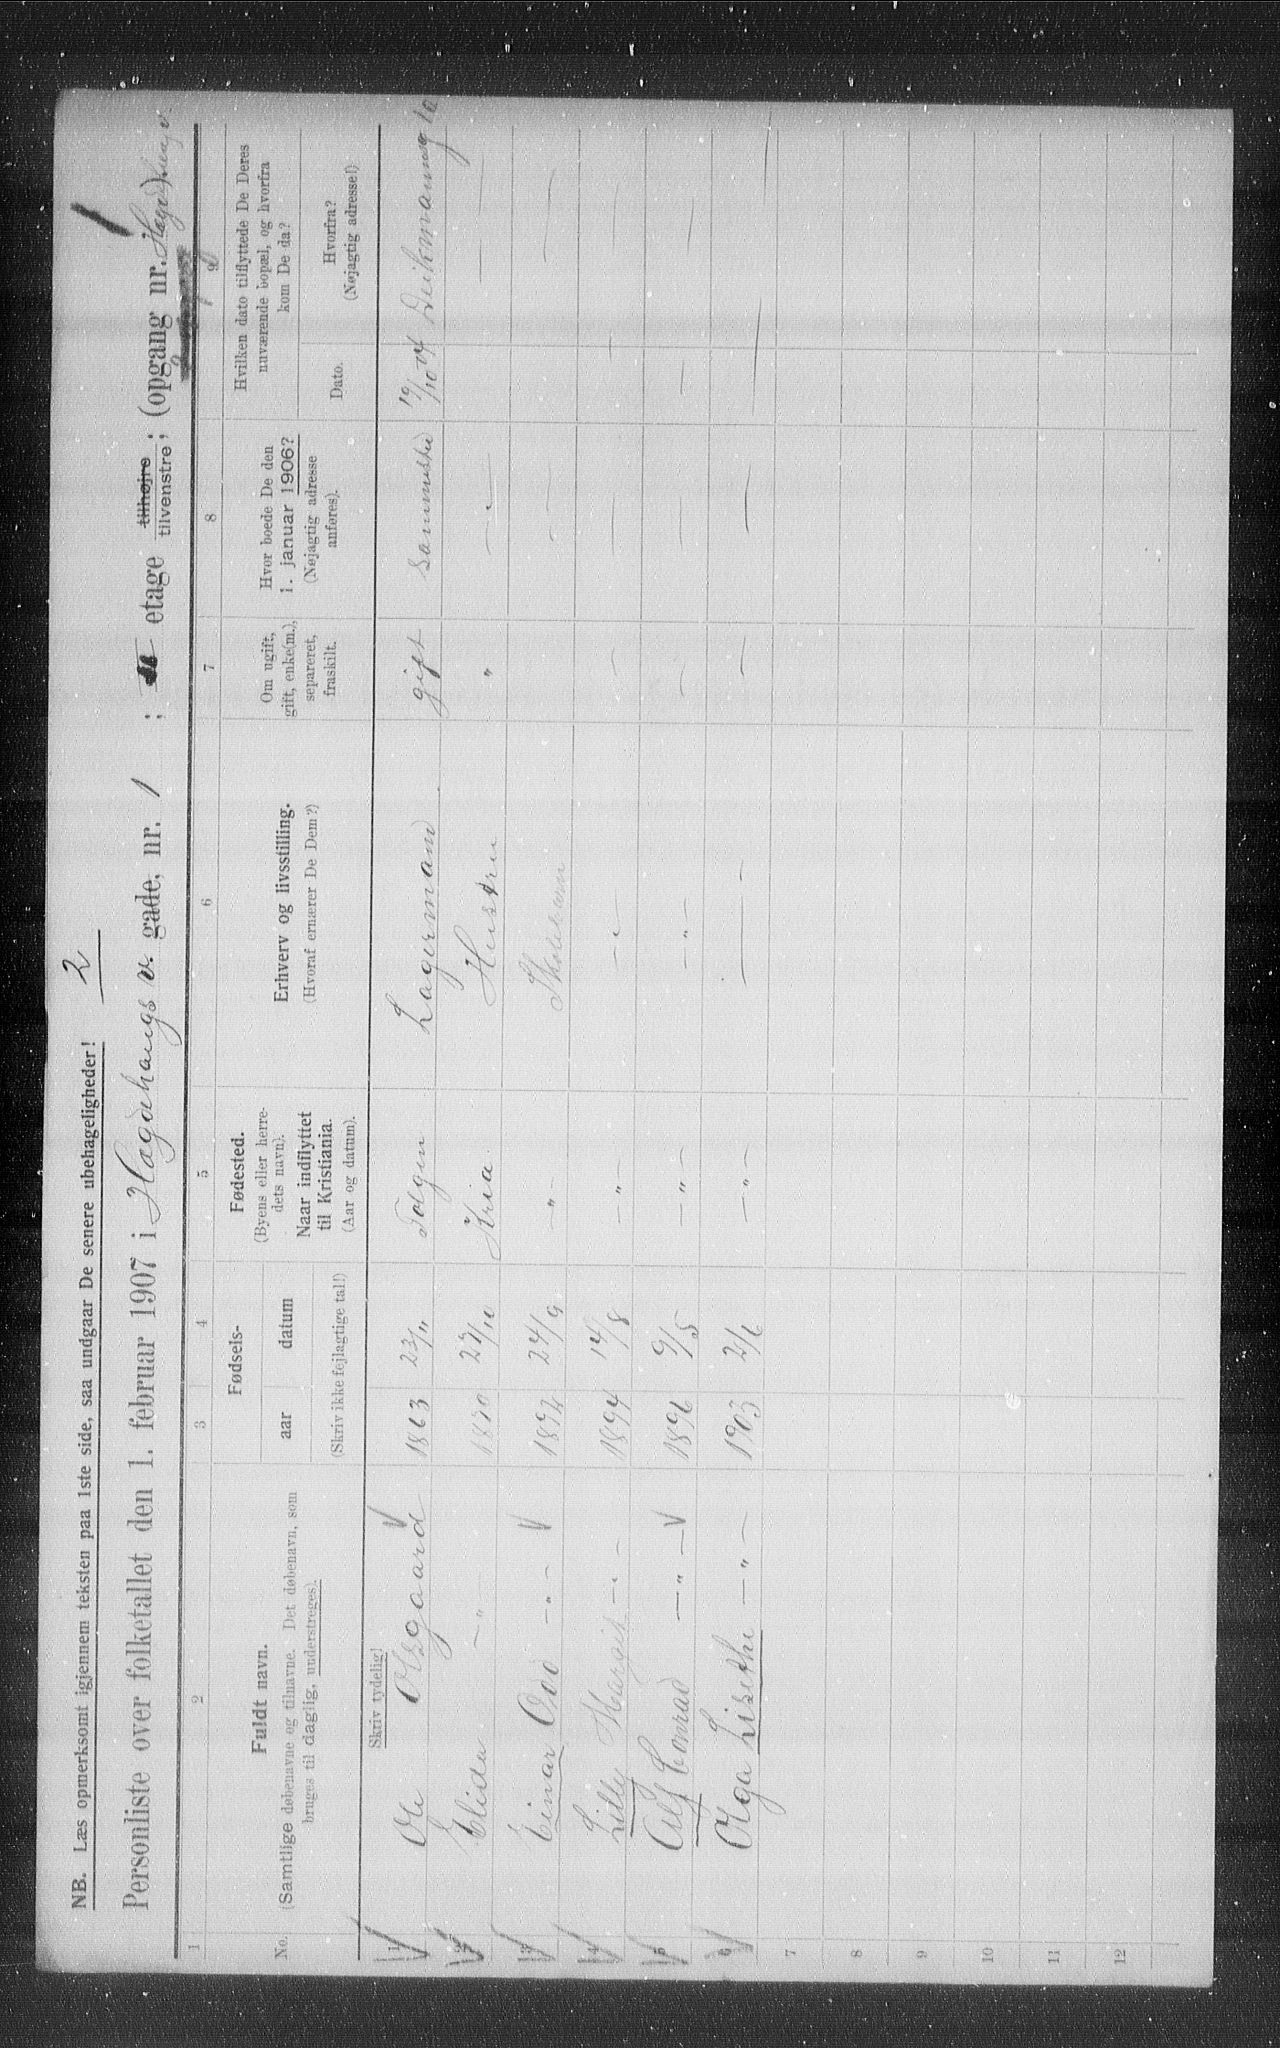 NB. Læs opmerksomt igjennem teksten paa 1ste side, saa undgaar De senere ubehageligheder!
2
Personliste over folketallet den 1. februar 1907 i Hægdehaugs v. gade, nr. 1 ; etage tilhøjre tilvenstre; (opgang nr. )
1 2 3 4 5 6 7 8 9
No.
Fuldt navn.
(Samtlige døbenavne og tilnavne. Det døbenavn, som
bruges til daglig, understreges).
Fødsels-
aar datum
(Skriv ikke fejlagtige tal!)
Fødested.
(Byens eller herre-
dets navn).
Naar indflyttet
til Kristiania.
(Aar og datum).
Erhverv og livsstilling.
(Hvoraf ernærer De Dem?)
Om ugift,
gift, enke(m.),
separeret,
fraskilt.
Hvor boede De den
1. januar 1906?
(Nøjagtig adresse
anføres).
Hvilken dato tilflyttede De Deres
nuværende bopæl, og hvorfra
kom De da?
Dato.
Hvorfra?
(Nøjagtig adresse!)
Skriv tydelig!
1 Ole Olsgaard 1863 23/11 Tolgen Lagermand gift Sammested 19/10 04 Deikmannsg 10
2 Elida — " 1870 Kria. Hustru "
3 Einar Odd — " — 1892 24/9 — " —
4 Lilly Margit — " — 1894 14/8 — " — — " —
5 Alf Conrad — " — 1896 9/5 — " — — " — —
6 Olga Lisethe — " — 1903 2/6 — " — — —
7
8
9
10
11
12